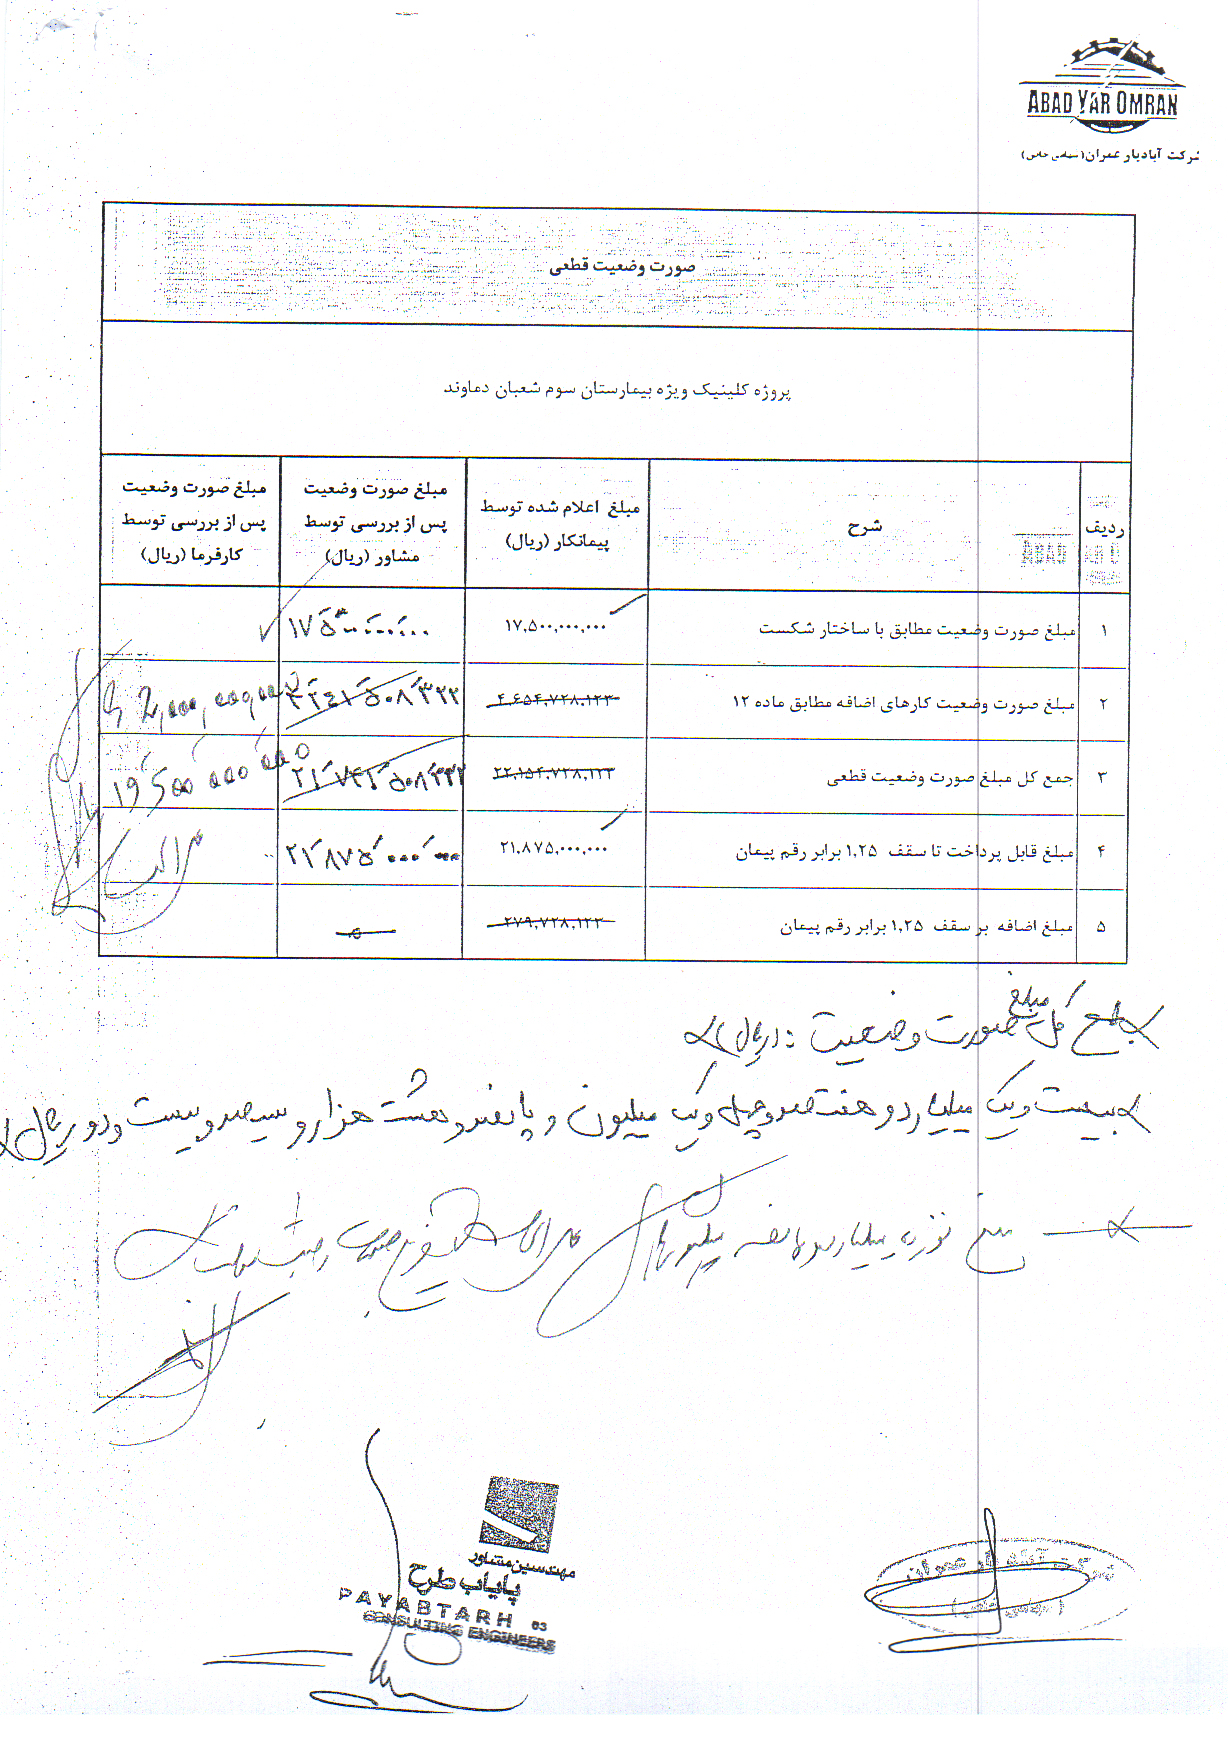 ABAD YAR OMRAN
شرکت آبادیار عمران (سهامی خاص)
صورت وضعیت قطعی
پروژه کلینیک ویژه بیمارستان سوم شعبان دماوند
ردیف شرح مبلغ اعلام شده توسط پیمانکار (ریال) مبلغ صورت وضعیت پس از بررسی توسط مشاور (ریال) مبلغ صورت وضعیت پس از بررسی توسط کارفرما (ریال)
۱ مبلغ صورت وضعیت مطابق با ساختار شکست ۱۷,۵۰۰,۰۰۰,۰۰۰ ۱۷٬۵۰۰٬۰۰۰٬۰۰۰
۲ مبلغ صورت وضعیت کارهای اضافه مطابق ماده ۱۲ ۴,۶۵۴,۷۲۸,۱۲۳ ۳٬۲۴۱٬۵۰۸٬۳۲۲ 2,000,000,000
۳ جمع کل مبلغ صورت وضعیت قطعی ۲۲,۱۵۴,۷۲۸,۱۲۳ ۲۱٬۷۴۱٬۵۰۸٬۳۲۲ 19 500 000 000
۴ مبلغ قابل پرداخت تا سقف ۱,۲۵ برابر رقم پیمان ۲۱,۸۷۵,۰۰۰,۰۰۰ ۲۱٬۸۷۵٬۰۰۰٬۰۰۰
۵ مبلغ اضافه بر سقف ۱,۲۵ برابر رقم پیمان ۲۷۹,۷۲۸,۱۲۳
جمع کل مبلغ صورت وضعیت : (ریال)
بیست و یک میلیارد و هفتصد و چهل و یک میلیون و پانصد و هشت هزار و سیصد و بیست و دو ریال
مبلغ نوزده میلیارد و پانصد میلیون ریال
مهندسین مشاور
پایاب طرح
PAYABTARH 03
CONSULTING ENGINEERS
شرکت آباد یار عمران
(سهامی خاص)